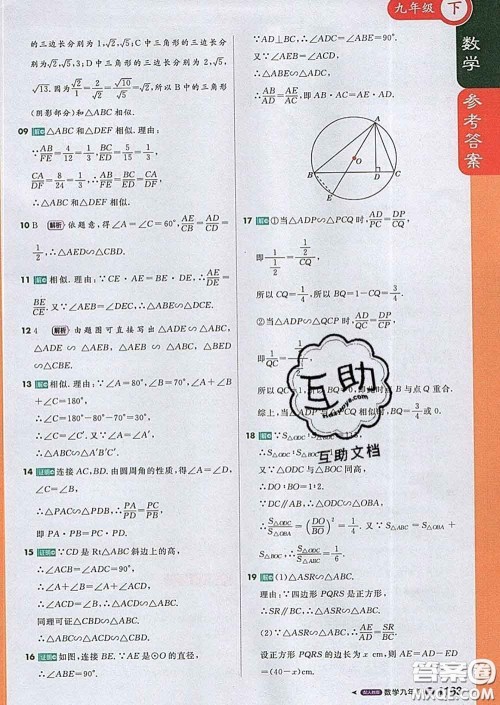 九年级 下
数学
参考答案
的三边长分别为 1,√2,√5;C中三角形的三边长分别为 √2,√5,3;D中三角形的三边长分别为 2,√5,
√13. 因为 √2/1=2/√2=√10/√5=√2,所以B中的三角形
(阴影部分)和△ABC相似.
09 △ABC和△DEF相似.理由:
∵AB/FE=4/12=1/3,BC/ED=5/15=1/3,
CA/DF=8/24=1/3,∴AB/FE=BC/ED=CA/DF,
∴△ABC∽△DEF.
10 B 解析 依题意,得∠A=∠C=60°,AE/CB=AD/CD=
1/2,∴△ADE∽△CBD.
11 相似.理由:∵CE·AE=BE·DE,∴AE/DE=
BE/CE.又∵∠AEB=∠DEC,∴△ABE∽△DCE.
12 4 解析 由题图可直接写出△ADE∽△ABC,
△ADE∽△AEB,△ADE∽△BCE,△ABC∽△AEB,△BED∽△CBE.
13 相似.理由:∵∠A=80°,∠B=70°,∠A+∠B+
∠C=180°,
∴∠C=180°-80°-70°=30°.
∵∠A=∠A′=80°,∠C=∠C′=30°,
∴△ABC∽△A′B′C′.
14 证明 连接AC,BD.由圆周角的性质,得∠A=∠D,
∠C=∠B,
∴△PAC∽△PDB,∴PA/PD=PC/PB,
即 PA·PB=PC·PD.
15 证明 ∵CD是Rt△ABC斜边上的高,
∴∠ADC=∠ACB=90°,
∴∠A+∠B=∠A+∠ACD,
∴∠B=∠ACD,∴△ABC∽△ACD.
同理可证△ABC∽△CBD.
∴△ABC∽△ACD∽△CBD.
16 证明 如图,连接BE,∵AE是⊙O的直径,
∴∠ABE=90°.
∵AD⊥BC,∴∠ADC=∠ABE=90°.
∴△ABE∽△ADC.
∴AB/AD=AE/AC,即AB·AC=AE·AD.
A
O
B
D
C
E
17 ①当△ADP∽△PCQ时,AD/PC=DP/CQ,
即 1/(1/2)=(1/2)/CQ,
所以CQ=1/4,所以BQ=1-CQ=3/4.
②当△ADP∽△QCP时,AD/QC=DP/CP,
即 1/QC=
所以QC=1,所以BQ=0,即此时点B与点Q重合.
综上,当△ADP
3/4或0.
18 ∵S△ODC
又∵△ODC与△BOC同高,
∴DO:BO=1:2.
又∵DC∥AB,∴△ODC∽△OBA.
∴S△ODC/S△OBA=(DO/BO)²=1/4.又∵S△ABC=S△OBA+S△BOC,
∴S△ODC/S△ABC=1/6.
19 (1)△ASR∽△ABC.
理由:∵四边形PQRS是正方形,
∴SR∥BC,∴△ASR∽△ABC.
(2)∵△ASR∽△ABC,∴SR/BC=AE/AD.
设正方形PQRS的边长为x cm,则AE=AD-ED
=(40-x)cm.
互助
互助文档
数学九年
答案圈